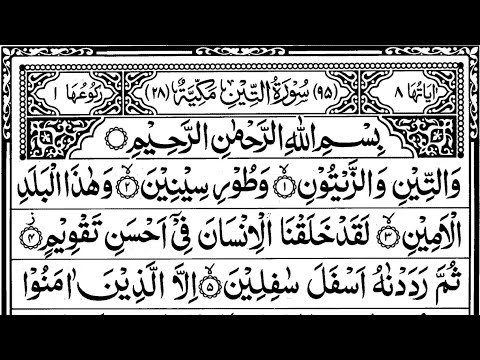 اٰیَاتُهَا ۸ (۹۵) سُوْرَةُ التِّيْنِ مَكِّيَّةٌ (۲۸) رُكُوْعُهَا ۱
بِسْمِ اللّٰهِ الرَّحْمٰنِ الرَّحِيْمِ
وَالتِّيْنِ وَالزَّيْتُوْنِ ۙ﴿۱﴾ وَطُوْرِ سِيْنِيْنَ ۙ﴿۲﴾ وَهٰذَا الْبَلَدِ
الْاَمِيْنِ ۙ﴿۳﴾ لَقَدْ خَلَقْنَا الْاِنْسَانَ فِيْۤ اَحْسَنِ تَقْوِيْمٍ ؗ﴿۴﴾
ثُمَّ رَدَدْنٰهُ اَسْفَلَ سٰفِلِيْنَ ۙ﴿۵﴾ اِلَّا الَّذِيْنَ اٰمَنُوْا